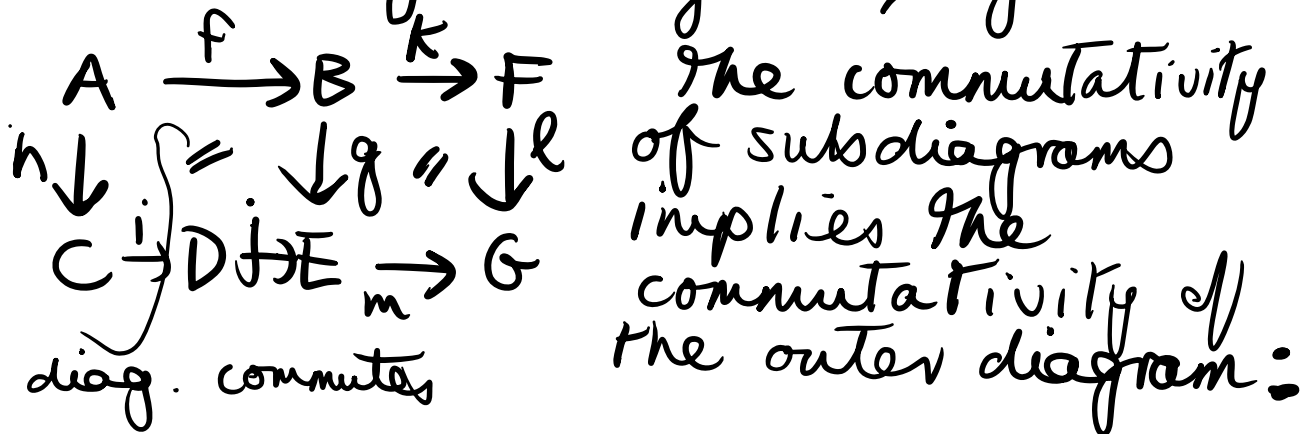 f k
A → B → F
h ↓ = ↓ g = ↓ l
i j
C → D → E → G
m
diag. commutes
The commutativity
of subdiagrams
implies the
commutativity of
the outer diagram: